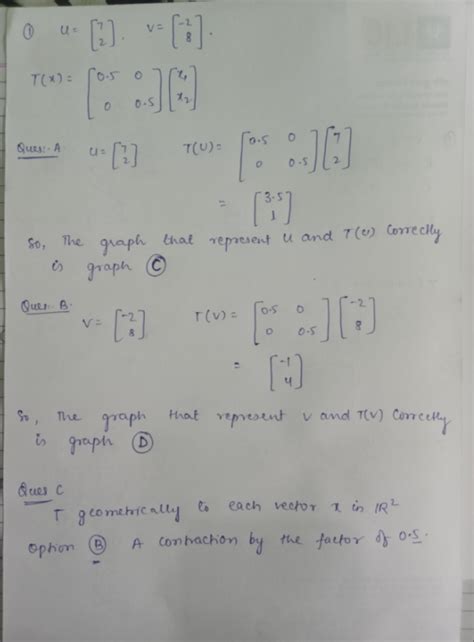 ① u = [7 2]. v = [-2 8].
T(x) = [0.5 0 0 0.5] [x₁ x₂]
Ques:- A u = [7 2] T(U) = [0.5 0 0 0.5] [7 2]
= [3.5 1]
So, The graph that represent u and T(u) Correctly
is graph Ⓒ
Ques:- B. v = [-2 8] T(V) = [0.5 0 0 0.5] [-2 8]
= [-1 4]
So, The graph that represent v and T(V) Correctly
is graph Ⓓ
Ques C
T geometrically to each vector x in ℝ²
option Ⓑ A contraction by the factor of 0.5.